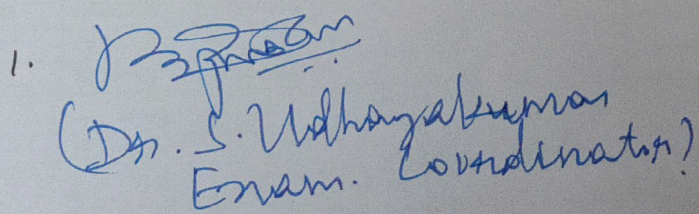 1.
(Dr. S. Udhayakumar
Exam. Coordinator)